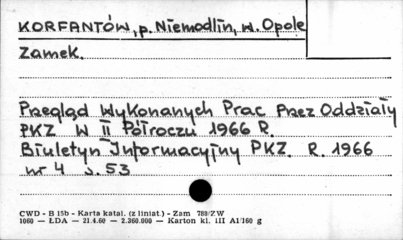 KORFANTÓW, p. Niemodlin, w. Opole
Zamek.
Przegląd Wykonanych Prac Przez Oddziały
PKZ W II Półroczu 1966 R.
Biuletyn Informacyjny PKZ. R. 1966
nr 4 s. 53
CWD - B 15b - Karta katal. (z liniat.) - Zam 788/ZW
1060 — ŁDA — 21.4.60 — 2.360.000 — Karton kl. III A1/160 g